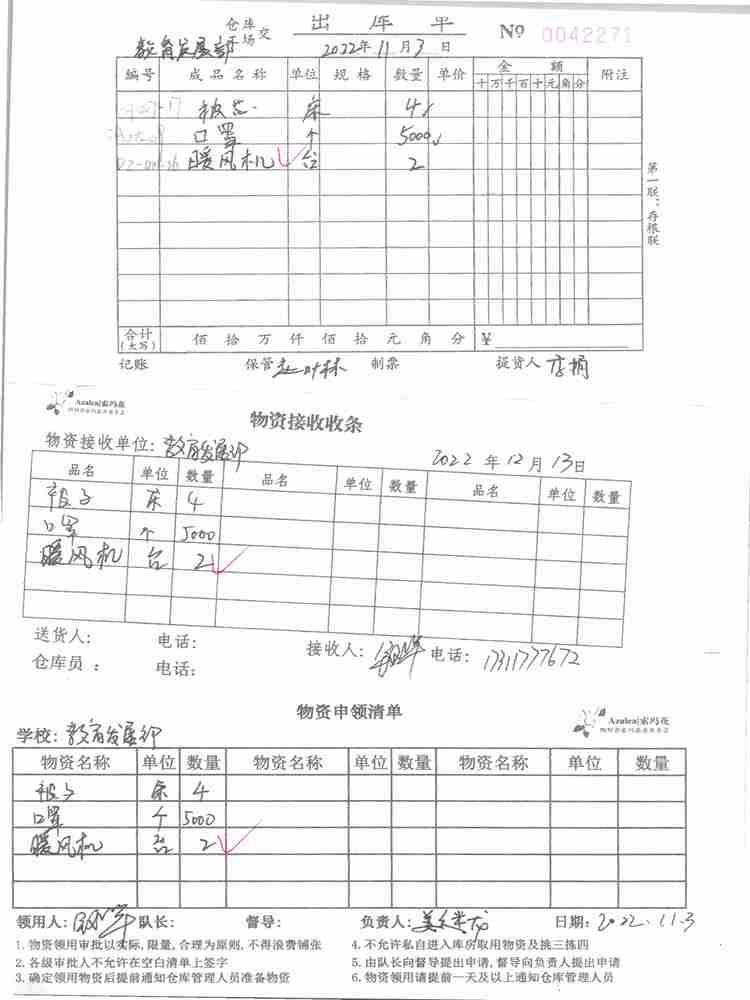 仓库
市场 交 出库单 № 0042271
教育发展部 2022年11月3日
编号 成品名称 单位 规格 数量 单价 金额 附注
十 万 千 百 十 元 角 分
被芯 床 4
口罩 个 5000
暖风机 台 2
第一联：存根联
合计（大写） 佰 拾 万 仟 佰 拾 元 角 分 ¥
记账 保管 制票 提货人
Azalea|索玛花
物资接收收条
物资接收单位：教育发展部 2022年12月13日
品名 单位 数量 品名 单位 数量 品名 单位 数量
被子 床 4
口罩 个 5000
暖风机 台 2
送货人： 电话： 接收人： 电话：17311777672
仓库员： 电话：
物资申领清单
Azalea|索玛花
学校：教育发展部
物资名称 单位 数量 物资名称 单位 数量 物资名称 单位 数量
被子 床 4
口罩 个 5000
暖风机 台 2
领用人： 队长： 督导： 负责人： 日期：2022.11.3
1.物资领用审批以实际,限量,合理为原则,不得浪费铺张 4.不允许私自进入库房取用物资及挑三拣四
2.各级审批人不允许在空白清单上签字 5.由队长向督导提出申请,督导向负责人提出申请
3.确定领用物资后提前通知仓库管理人员准备物资 6.物资领用请提前一天及以上通知仓库管理人员